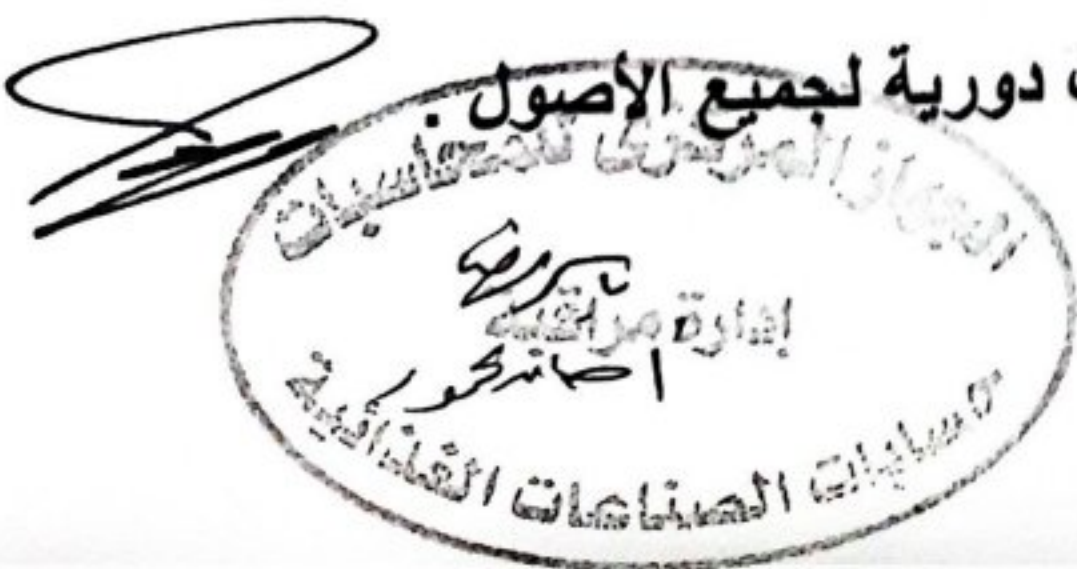 دورية لجميع الأصول .
الجهاز المركزى للمحاسبات
إدارة مراقبة
حسابات الصناعات الغذائية